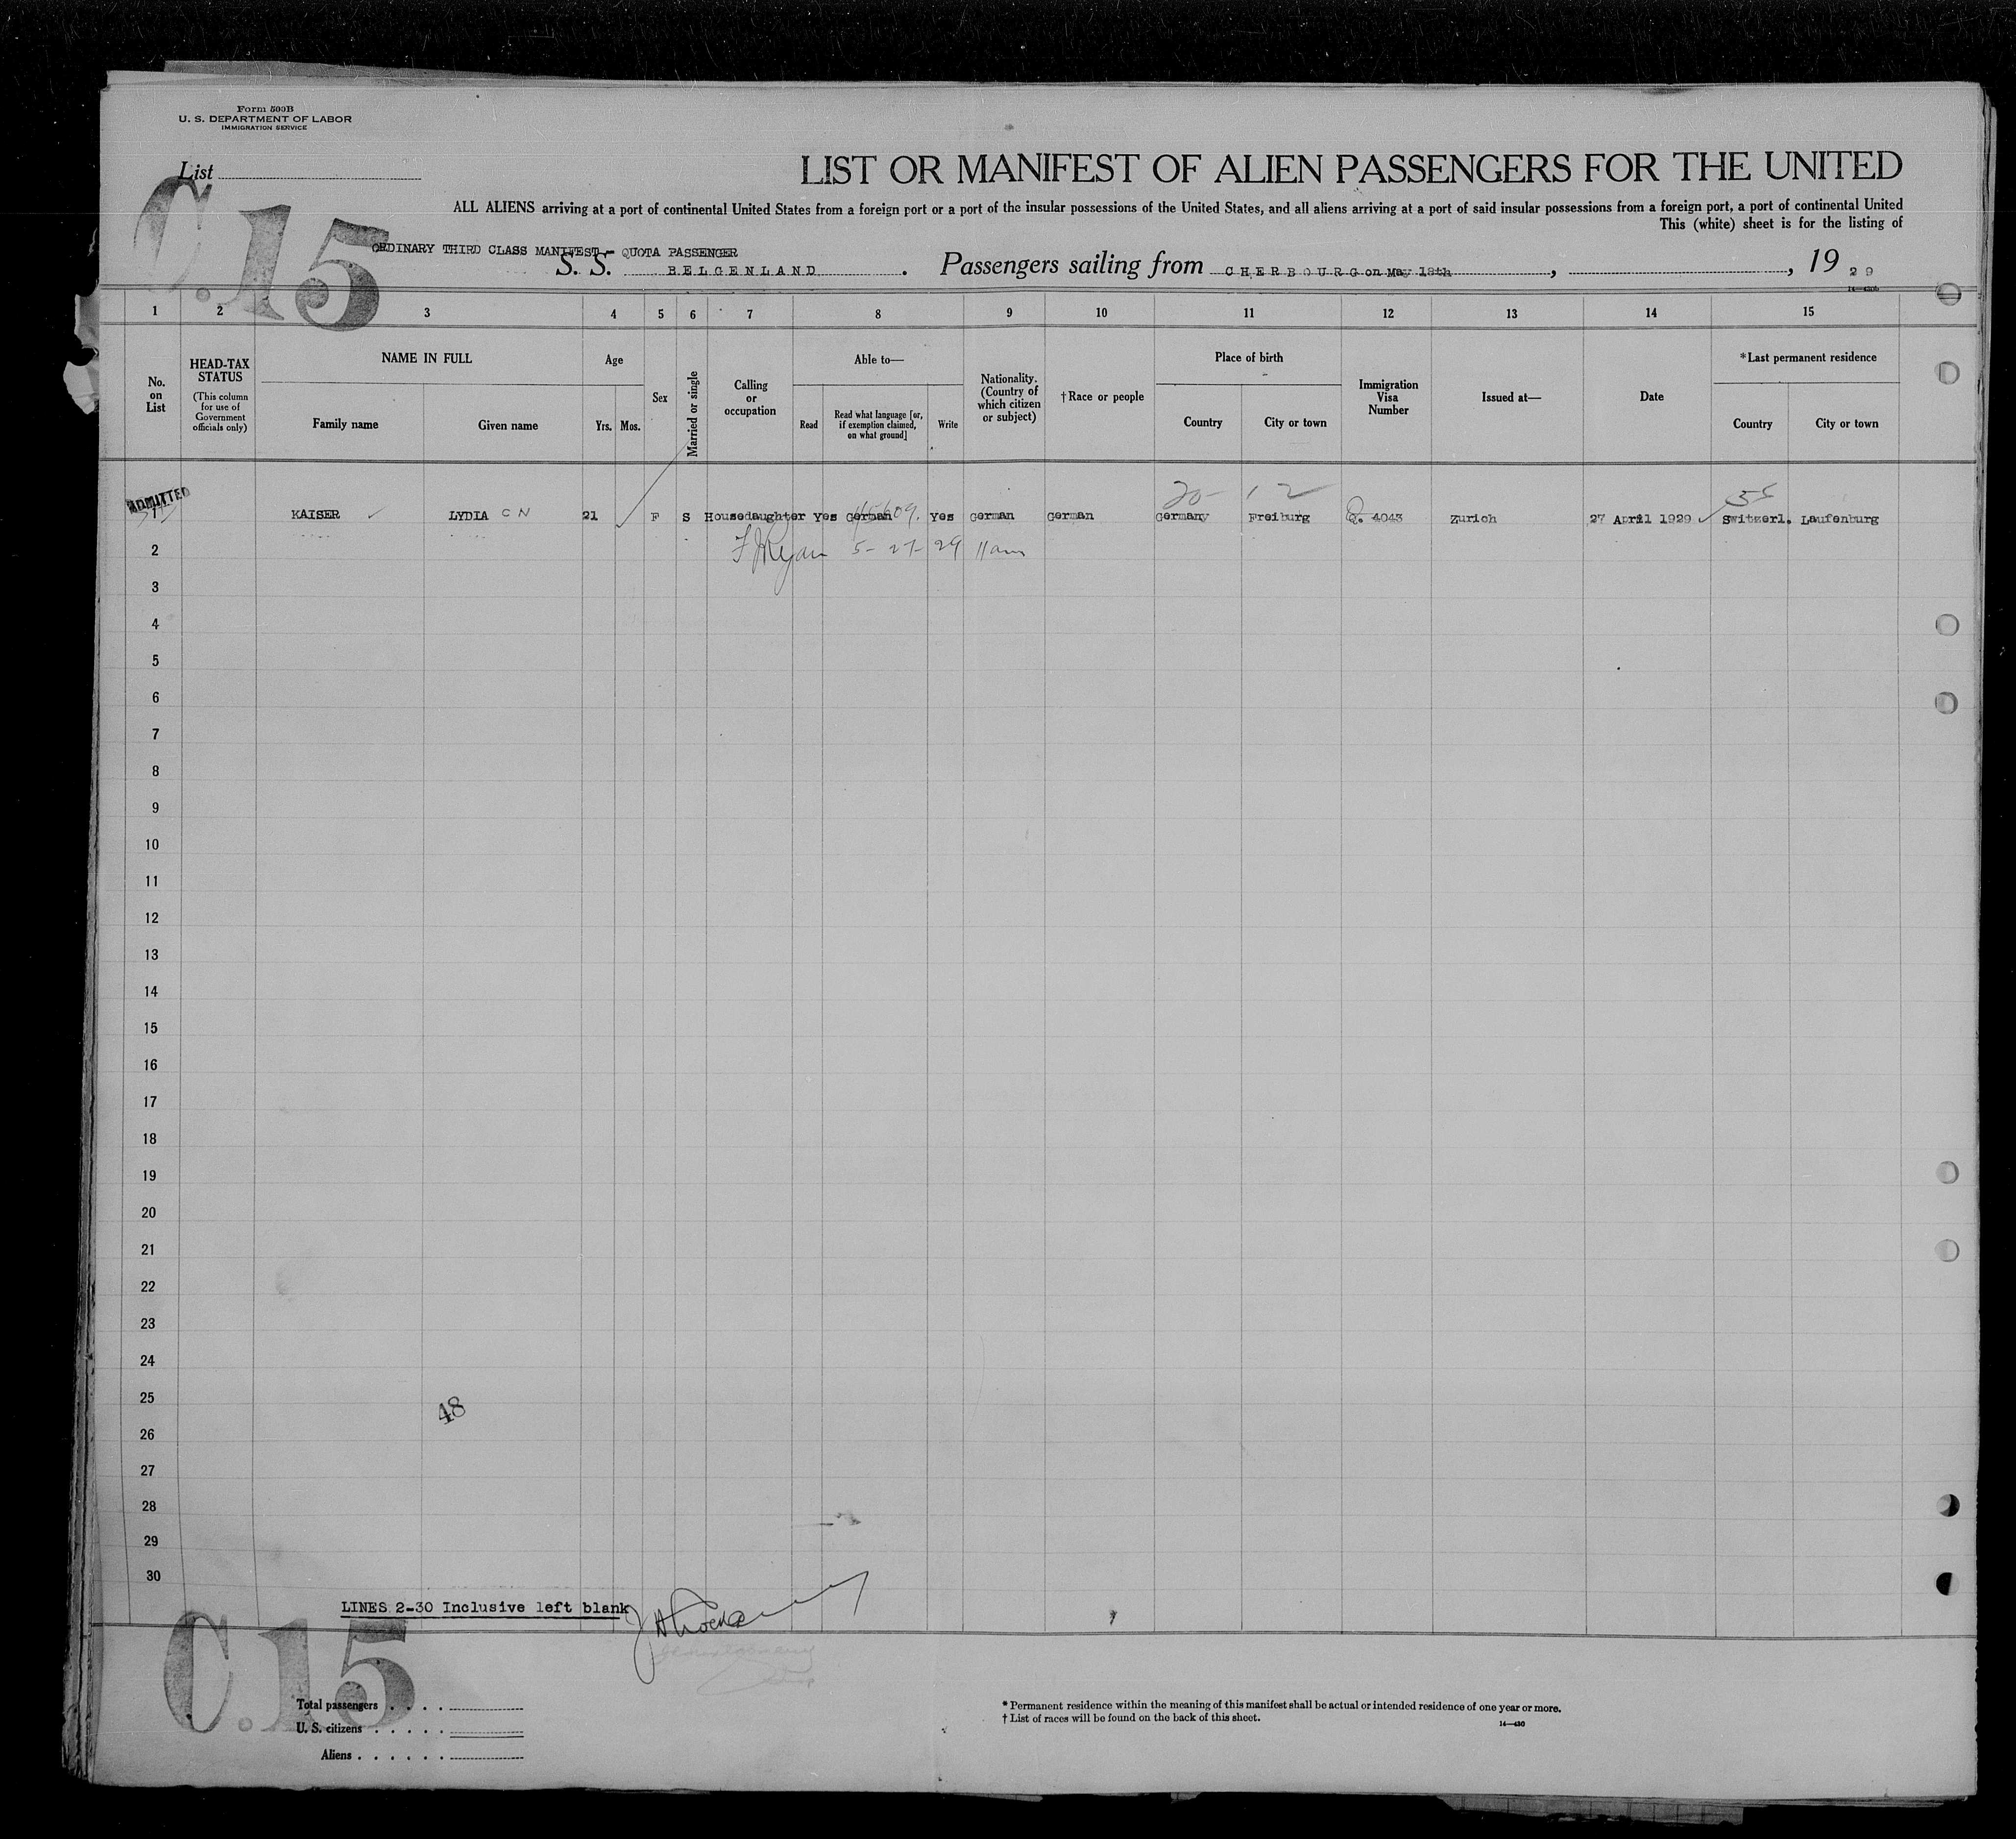 Form 500B
U. S. DEPARTMENT OF LABOR
IMMIGRATION SERVICE
List
C.15
LIST OR MANIFEST OF ALIEN PASSENGERS FOR THE UNITED
ALL ALIENS arriving at a port of continental United States from a foreign port or a port of the insular possessions of the United States, and all aliens arriving at a port of said insular possessions from a foreign port, a port of continental United
This (white) sheet is for the listing of
ORDINARY THIRD CLASS MANIFEST - QUOTA PASSENGER
S. S. BELGENLAND. Passengers sailing from CHERBOURG on May 18th, , 19 29
1 2 3 4 5 6 7 8 9 10 11 12 13 14 15
No. on List
HEAD-TAX STATUS
(This column for use of Government officials only)
NAME IN FULL
Family name Given name
Age
Yrs. Mos.
Sex
Married or single
Calling or occupation
Able to—
Read
Read what language [or, if exemption claimed, on what ground]
Write
Nationality. (Country of which citizen or subject)
†Race or people
Place of birth
Country City or town
Immigration Visa Number
Issued at—
Date
*Last permanent residence
Country City or town
ADMITTED
20- 12
1 KAISER LYDIA C N 21 F S Housedaughter Yes German Yes German German Germany Freiburg Q. 4043 Zurich 27 April 1929 Switzerl. Laufenburg
2 F J Ryan 5-27-29 11am
3
4
5
6
7
8
9
10
11
12
13
14
15
16
17
18
19
20
21
22
23
24
25
48
26
27
28
29
30
LINES 2-30 Inclusive left blank
C.15
Total passengers
U. S. citizens
Aliens
* Permanent residence within the meaning of this manifest shall be actual or intended residence of one year or more.
† List of races will be found on the back of this sheet.
14—430